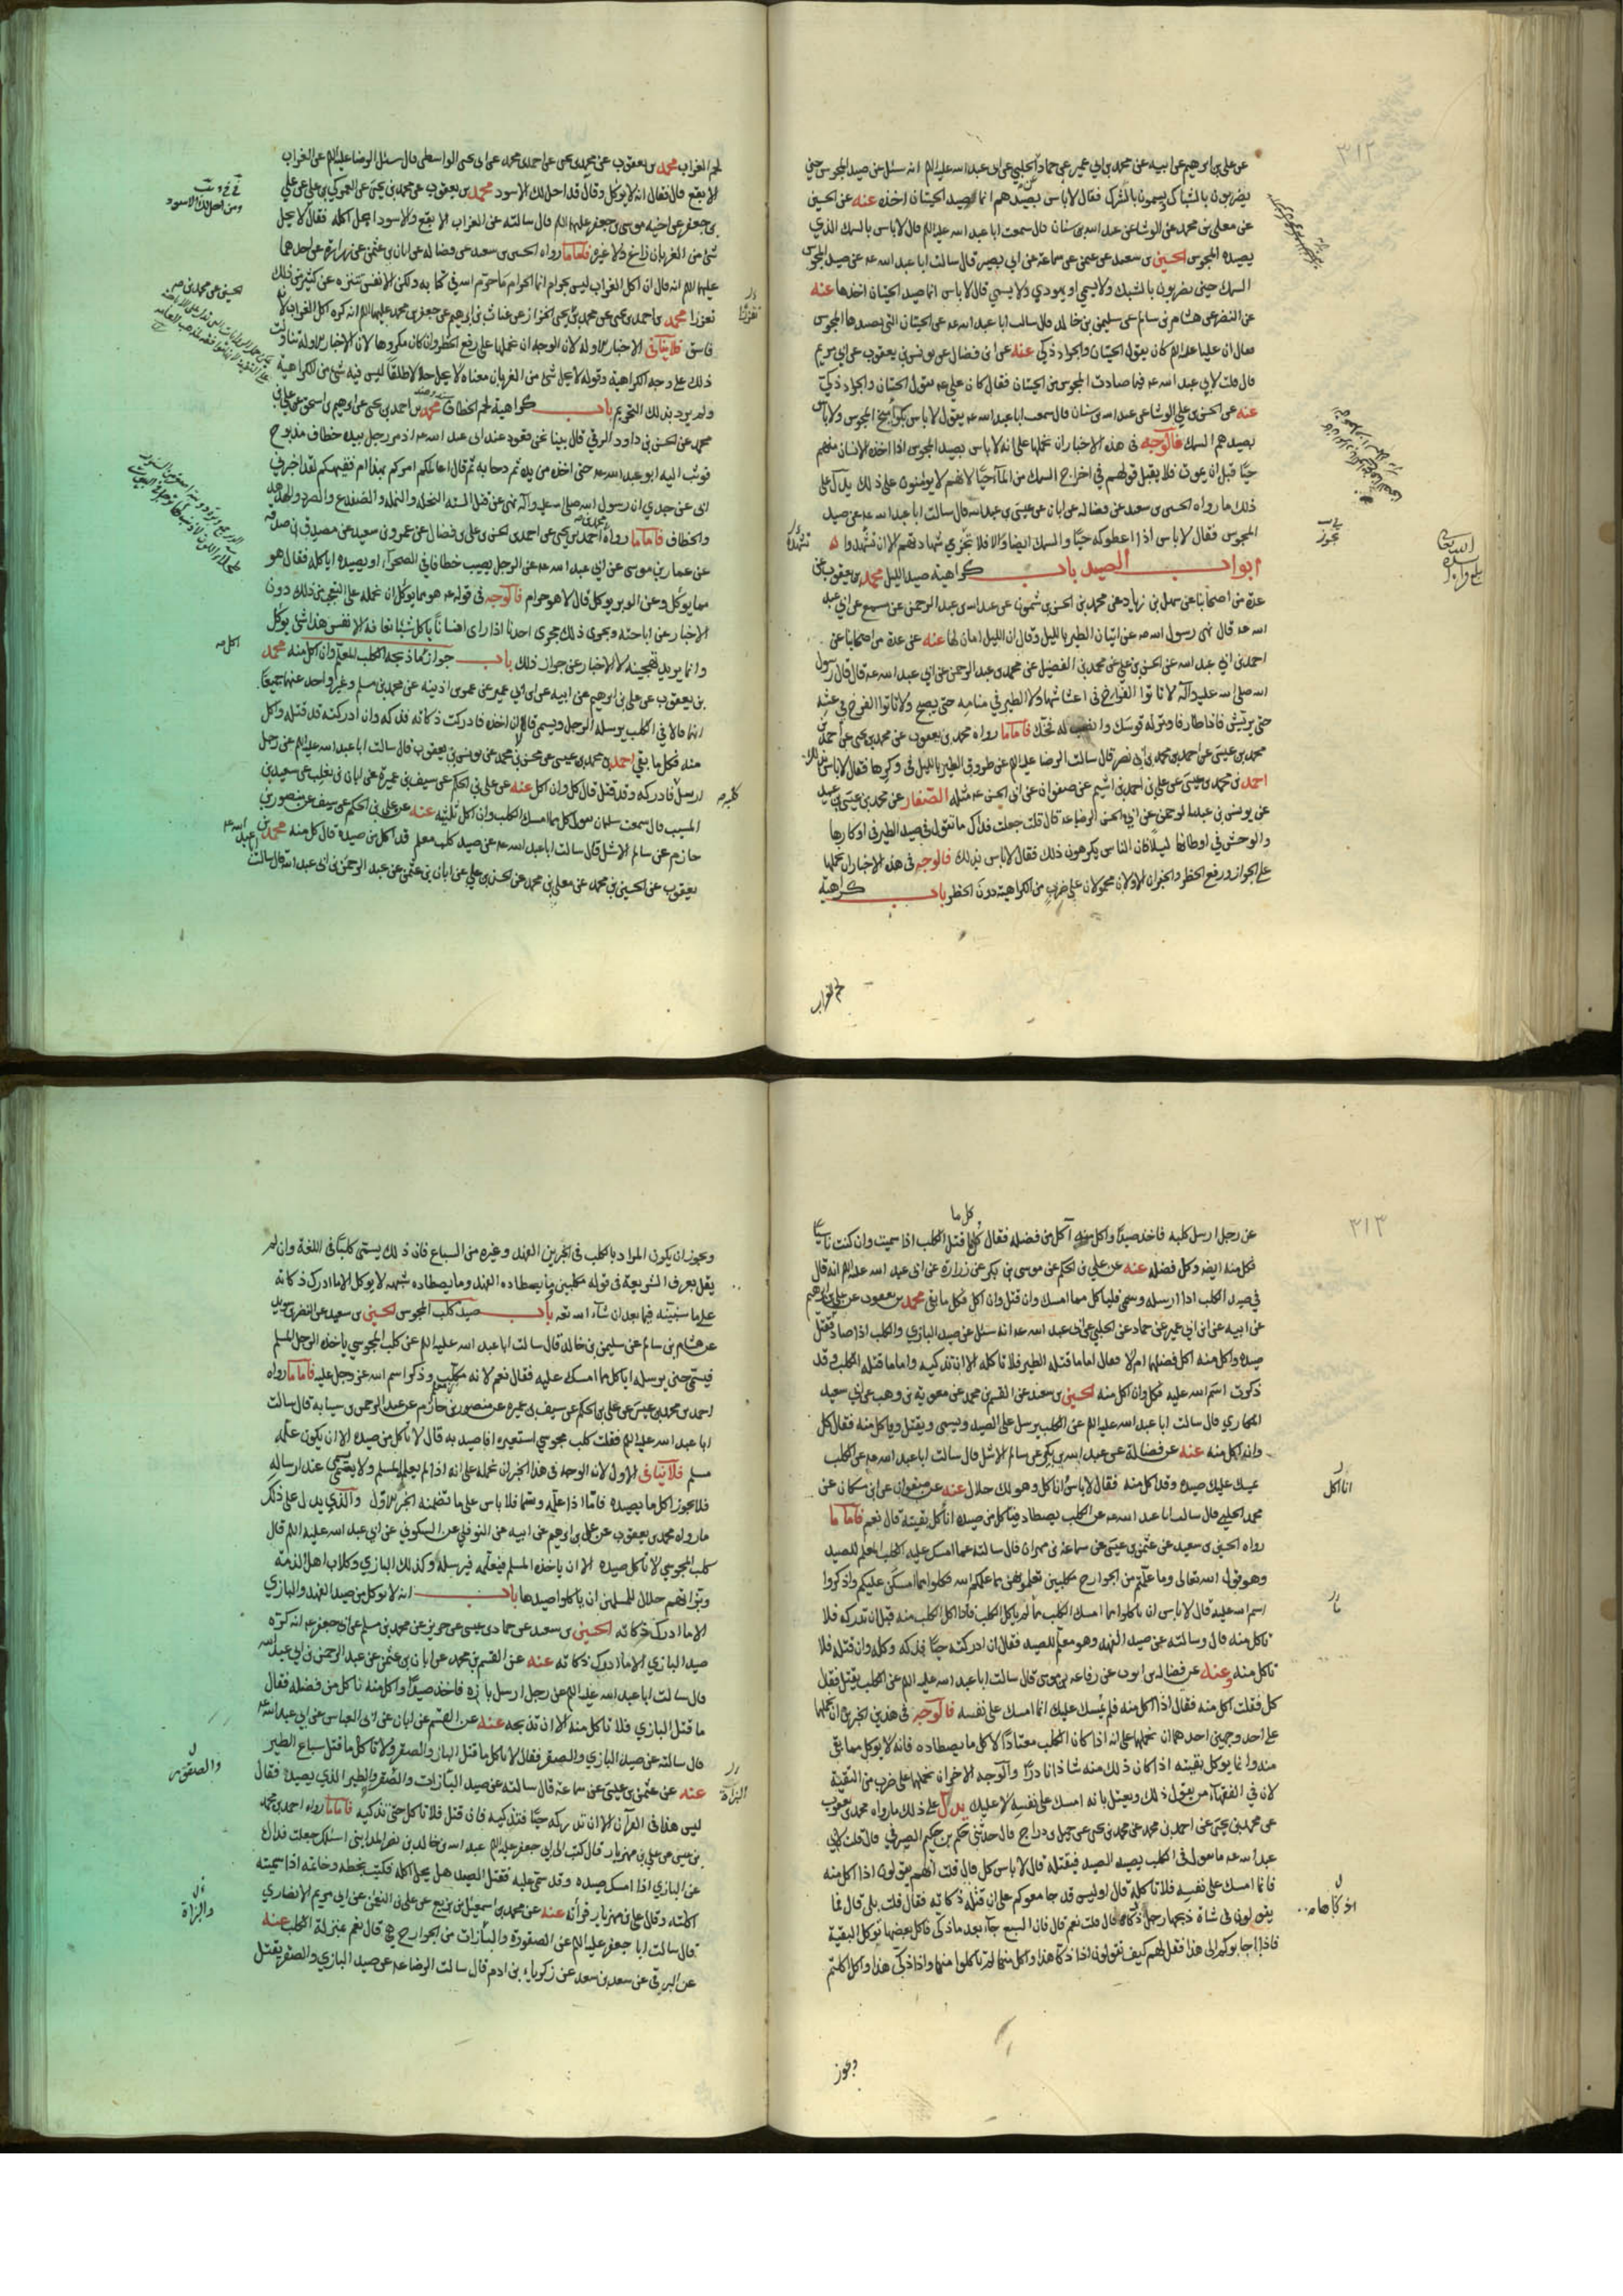 ٣١٢
عن علي بن ابرهيم عن ابيه عن محمد بن ابي عمير عن حماد عن الحلبي عن ابي عبد الله عليه السلم انه سئل عن صيد المجوس حين
يضربون بالشباك ويسمون بالشرك فقال لا باس بصيدهم انما صيد الحيتان اخذه عنه عن الحسين
عن معلى بن محمد عن الوشا عن عبد الله بن سنان قال سمعت ابا عبد الله عليه السلم قال لا باس بالسمك الذي
يصيده المجوس الحسين بن سعيد عن عثمن عن سماعة عن ابي بصير قال سالت ابا عبد الله عه عن صيد المجوس
السمك حين يضربون بالشبك ولا يسمي او يهودي ولا يسمي قال لا باس انما صيد الحيتان اخذها عنه
عن النضر عن هشام بن سالم عن سليمن بن خالد قال سالت ابا عبد الله عه عن الحيتان التي يصيدها المجوس
فقال ان عليا عليه السلم كان يقول الحيتان والجراد ذكي عنه عن ابن فضال عن يونس بن يعقوب عن ابي مريم
قال قلت لابي عبد الله عه فيما صادت المجوس من الحيتان فقال كان علي عه يقول الحيتان والجراد ذكي
عنه عن الحسن بن علي الوشا عن عبد الله بن سنان قال سمعت ابا عبد الله عه يقول لا باس بكوامخ المجوس ولا باس
بصيدهم السمك فالوجه في هذه الاخبار ان نحملها على انه لا باس بصيد المجوس اذا اخذه الانسان منهم
حيا قبل ان يموت فلا يقبل قولهم في اخراج السمك من الماء حيا لانهم لا يؤمنون على ذلك يدل على
ذلك ما رواه الحسين بن سعيد عن فضالة عن ابان عن عيسى بن عبد الله قال سالت ابا عبد الله عه عن صيد
المجوس فقال لا باس اذا اعطوكه حيا والسمك ايضا والا فلا تجزي شهادتهم الا ان تشهدوا له
ابواب الصيد باب كراهية صيد الليل محمد بن يعقوب عن
عدة من اصحابنا عن سهل بن زياد عن محمد بن الحسن بن شمون عن عبد الله بن عبد الرحمن عن مسمع عن ابي عبد
الله عه قال نهى رسول الله ص عن اتيان الطير بالليل وقال ان الليل امان لها عنه عن عدة من اصحابنا عن
احمد بن ابي عبد الله عن الحسن بن علي عن محمد بن الفضيل عن محمد بن عبد الرحمن عن ابي عبد الله عه قال قال رسول
الله صلى الله عليه وآله لا تاتوا الفراخ في اعشاشها ولا الطير في منامه حتى يصبح ولا تاتوا الفرخ في عشه
حتى يريش فاذا طار فاوتر له قوسك وانصب له فخك فاما ما رواه محمد بن يعقوب عن محمد بن يحيى عن احمد بن
محمد بن عيسى عن احمد بن محمد بن ابي نصر قال سالت الرضا عليه السلم عن طروق الطير بالليل في وكرها فقال لا باس بذلك
احمد بن محمد بن عيسى عن علي بن احمد بن اشيم عن صفوان عن ابي الحسن عه مثله الصفار عن محمد بن عيسى بن عبيد
عن يونس بن عبد الرحمن عن ابي الحسن الرضا عه قال قلت جعلت فداك ما تقول في صيد الطير في اوكارها
والوحش في اوطانها ليلا فان الناس يكرهون ذلك فقال لا باس بذلك فالوجه في هذه الاخبار ان نحملها
على الجواز ورفع الحظر والخبران الاولان محمولان على ضرب من الكراهية دون الحظر باب كراهية
لحم الغراب
يجوز
لحم الغراب محمد بن يعقوب عن محمد بن يحيى عن احمد بن محمد عن ابي يحيى الواسطي قال سئل الرضا عليه السلم عن الغراب
الابقع قال فقال انه لا يوكل وقال قد احل لك الاسود محمد بن يعقوب عن محمد بن يحيى عن العمركي بن علي عن علي
بن جعفر عن اخيه موسى بن جعفر عليهما السلم قال سالته عن الغراب الابقع والاسود ايحل اكله فقال لا يحل
شئ من الغربان زاغ ولا غيره فاما ما رواه الحسين بن سعيد عن فضالة عن ابان بن عثمن عن زرارة عن احدهما
عليهما السلم انه قال ان اكل الغراب ليس بحرام انما الحرام ما حرم الله في كتابه ولكن الانفس تتنزه عن كثير من ذلك
تقززا محمد بن احمد بن يحيى عن محمد بن يحيى الخزاز عن غياث بن ابرهيم عن جعفر بن محمد عليهما السلم انه كره اكل الغراب لانه
فاسق فلا ينافي الاخبار الاوله لان الوجه ان نحملها على رفع الحظر وان كان مكروها لان الاخبار الاوله تناولت
ذلك على وجه الكراهية وقوله لا يحل شئ من الغربان معناه لا يحل حلالا طلقا ليس فيه شئ من الكراهية
ولم يرد بذلك التحريم باب كراهية لحم الخطاف محمد بن احمد بن يحيى عن ابرهيم بن اسحق عن علي بن
محمد عن الحسن بن داود الرقي قال بينا نحن قعود عند ابي عبد الله عه اذ مر رجل بيده خطاف مذبوح
فوثب اليه ابو عبد الله عه حتى اخذه من يده ثم دحا به ثم قال اعالمكم امركم بهذا ام فقيهكم لقد اخبرني
ابي عن جدي ان رسول الله صلى الله عليه وآله نهى عن قتل الستة النحلة والنملة والضفدع والصرد والهدهد
والخطاف فاما ما رواه احمد بن يحيى عن احمد بن الحسن بن علي بن فضال عن عمرو بن سعيد عن مصدق بن صدقه
عن عمار بن موسى عن ابي عبد الله عه عن الرجل يصيب خطافا في الصحرآء او يصيده اياكله فقال هو
مما يوكل وعن الوبر يوكل قال لا هو حرام فالوجه في قوله عه هو مما يوكل ان نحمله على التعجب من ذلك دون
الاخبار عن اباحته ويجري ذلك مجرى احدنا اذا راى انسانا ياكل شيئا تعافه الانفس هذا شئ يوكل
وانما يريد تهجينه لا الاخبار عن جواز ذلك باب جواز كل ما ذبحه الكلب المعلم وان اكل منه محمد
بن يعقوب عن علي بن ابرهيم عن ابيه عن ابن ابي عمير عن عمر بن اذينه عن محمد بن مسلم وغير واحد عنهما جميعا
انهما قالا في الكلب يرسله الرجل ويسمي قالا ان اخذه فادركت ذكاته فذكه وان ادركته قد قتله واكل
منه فكل ما بقي احمد بن محمد بن عيسى عن محسن بن محمد عن يونس بن يعقوب قال سالت ابا عبد الله عليه السلم عن رجل
ارسل فادركه وقد قتل قال كل وان اكل عنه عن علي بن الحكم عن سيف بن عميرة عن ابان بن تغلب عن سعيد بن
المسيب قال سمعت سلمان يقول كل مما امسك الكلب وان اكل ثلثيه عنه عن علي بن الحكم عن سيف عن منصور بن
حازم عن سالم الاشل قال سالت ابا عبد الله عه عن صيد كلب معلم قد اكل من صيده قال كل منه محمد بن
يعقوب عن الحسين بن محمد عن معلى بن محمد عن الحسن بن علي عن ابان بن عثمن عن عبد الرحمن بن ابي عبد الله قال سالت
٣١٣
كل ما
عن رجل ارسل كلبه فاخذ صيدا واكل منه آكل من فضله فقال كل ما قتل الكلب اذا سميت وان كنت ناسيا
فكل منه ايضه وكل فضله عنه عن علي بن الحكم عن موسى بن بكر عن زرارة عن ابي عبد الله عليه السلم انه قال
في صيد الكلب اذا ارسله وسمى فلياكل مما امسك وان قتل وان اكل فكل ما بقي محمد بن يعقوب عن علي بن ابرهيم
عن ابيه عن ابن ابي عمير عن حماد عن الحلبي عن ابي عبد الله عه انه سئل عن صيد البازي والكلب اذا صاد وقتل
صيده واكل منه اكل فضلها ام لا فقال اما ما قتله الطير فلا تاكله الا ان تذكيه واما ما قتله الكلب وقد
ذكرت اسم الله عليه فكل وان اكل منه الحسين بن سعيد عن القسم بن محمد عن معويه بن وهب عن ابي سعيد
المكاري قال سالت ابا عبد الله عليه السلم عن الكلب يرسل على الصيد ويسمى ويقتل وياكل منه فقال كل
وان اكل منه عنه عن فضالة عن عبد الله بن بكير عن سالم الاشل قال سالت ابا عبد الله عه عن الكلب
يمسك عليك صيده وقد اكل منه فقال لا باس انما اكل وهو لك حلال عنه عن صفوان عن ابن مسكان عن
محمد الحلبي قال سالت ابا عبد الله عه عن الكلب يصطاد فياكل من صيده اناكل بقيته قال نعم فاما ما
رواه الحسين بن سعيد عن عثمن بن عيسى عن سماعة بن مهران قال سالته عما امسك عليه الكلب المعلم للصيد
وهو قول الله تعالى وما علمتم من الجوارح مكلبين تعلمونهن مما علمكم الله فكلوا مما امسكن عليكم واذكروا
اسم الله عليه قال لا باس ان ياكلوا مما امسك الكلب ما لم ياكل الكلب فاذا اكل الكلب منه قبل ان تدركه فلا
تاكل منه قال وسالته عن صيد الفهد وهو معلم للصيد فقال ان ادركته حيا فذكه وكله وان قتله فلا
تاكل منه وعنه عن فضالة بن ايوب عن رفاعه بن موسى قال سالت ابا عبد الله عليه السلم عن الكلب يقتل فقال
كل فقلت اكل منه فقال اذا اكل منه فلم يمسك عليك انما امسك على نفسه فالوجه في هذين الخبرين ان نحملهما
على احد وجهين احدهما ان نحملها على انه اذا كان الكلب معتادا لاكل ما يصطاده فانه لا يوكل مما بقى
منه وانما يوكل بقيته اذا كان ذلك منه شاذا نادرا والوجه الاخر ان نحملها على ضرب من التقية
لان في الفقهاء من يقول ذلك ويعتل بانه امسك على نفسه لا عليك يدل على ذلك ما رواه محمد بن يعقوب
عن محمد بن يحيى عن احمد بن محمد عن محمد بن يحيى عن جميل بن دراج قال حدثني حكم بن حكيم الصيرفي قال قلت لابي
عبد الله عه ما تقول في الكلب يصيد الصيد فيقتله قال لا باس كل قال قلت انهم يقولون اذا اكل منه
فانما امسك على نفسه فلا تاكله قال اوليس قد جامعوكم على ان قتله ذكاته فقال قلت بلى قال فما
يقولون في شاة ذبحها رجل ذكاها قال قلت نعم قال فان السبع جآء بعد ما ذكى فاكل بعضها توكل البقية
فاذا اجابوكم الى هذا فقل لهم كيف تقولون اذا ذكا هذا واكل منها لم تاكلوا منها واذا ذكى هذا واكل اكلتم
ويجوز
ويجوز ان يكون المراد بالكلب في الخبرين الفهد وغيره من السباع فان ذلك يسمى كلبا في اللغة وان لم
يقل بعرف الشريعة في قوله مكلبين وما يصطاده الفهد وما يصطاده شبهه لا يوكل الا ما ادرك ذكاته
على ما سنبينه فيما بعد ان شآء الله تعه باب صيد كلب المجوس الحسين بن سعيد عن النضر بن سويد
عن هشام بن سالم عن سليمن بن خالد قال سالت ابا عبد الله عليه السلم عن كلب المجوسي ياخذه الرجل المسلم
فيسمي حين يرسله اياكل مما امسك عليه فقال نعم لانه مكلب وذكر اسم الله عز وجل عليه فاما ما رواه
احمد بن محمد بن عيسى عن علي بن الحكم عن سيف بن عميره عن منصور بن حازم عن عبد الرحمن بن سيابه قال سالت
ابا عبد الله عليه السلم فقلت كلب مجوسي استعيره افاصيد به قال لا تاكل من صيده الا ان يكون علمه
مسلم فلا ينافي الاول لانه الوجه في هذا الخبر ان نحمله على انه اذا لم يعلمه المسلم ولا يسمي عند ارساله
فلا يجوز اكل ما يصيده فاما اذا علمه وسمى فلا باس على ما تضمنه الخبر الاول والذي يدل على ذلك
ما رواه محمد بن يعقوب عن علي بن ابرهيم عن ابيه عن النوفلي عن السكوني عن ابي عبد الله عليه السلم قال
كلب المجوسي لا تاكل صيده الا ان ياخذه المسلم فيعلمه فيرسله وكذلك البازي وكلاب اهل الذمة
وبزاتهم حلال للمسلمين ان ياكلوا صيدها باب انه لا يوكل من صيد الفهد والبازي
الا ما ادرك ذكاته الحسين بن سعيد عن حماد بن عيسى عن حريز عن محمد بن مسلم عن ابي جعفر عه انه كره
صيد البازي الا ما ادرك ذكاته عنه عن القسم بن محمد عن ابان بن عثمن عن عبد الرحمن بن ابي عبد الله
قال سالت ابا عبد الله عليه السلم عن رجل ارسل بازه فاخذ صيدا واكل منه ناكل من فضله فقال
ما قتل البازي فلا تاكل منه الا ان تذبحه عنه عن القسم عن ابان عن ابي العباس عن ابي عبد الله عه
قال سالته عن صيد البازي والصقر فقال لا تاكل ما قتل الباز والصقر ولا تاكل ما قتل سباع الطير
عنه عن عثمن بن عيسى عن سماعة قال سالته عن صيد البازات والصقر والطير الذي يصيده فقال
ليس هذا في القرآن الا ان تدركه حيا فتذكيه فان قتل فلا تاكل حتى تذكيه فاما ما رواه احمد بن محمد
بن عيسى عن علي بن مهزيار قال كتب الى ابي جعفر عليه السلم عبد الله بن خالد بن نصر المدايني اسئلك جعلت فداك
عن البازي اذا امسك صيده وقد سمى عليه فقتل الصيد هل يحل اكله فكتب بخطه وخاتمه اذا سميته
اكلته وقال علي بن مهزيار قرأته عنه عن محمد بن اسمعيل بن بزيع عن علي بن النعمن عن ابي مريم الانصاري
قال سالت ابا جعفر عليه السلم عن الصقورة والبازات من الجوارح هي قال نعم بمنزلة الكلب عنه
عن البرقي عن سعد بن سعد عن زكريا بن ادم قال سالت الرضا عه عن صيد البازي والصقر يقتل